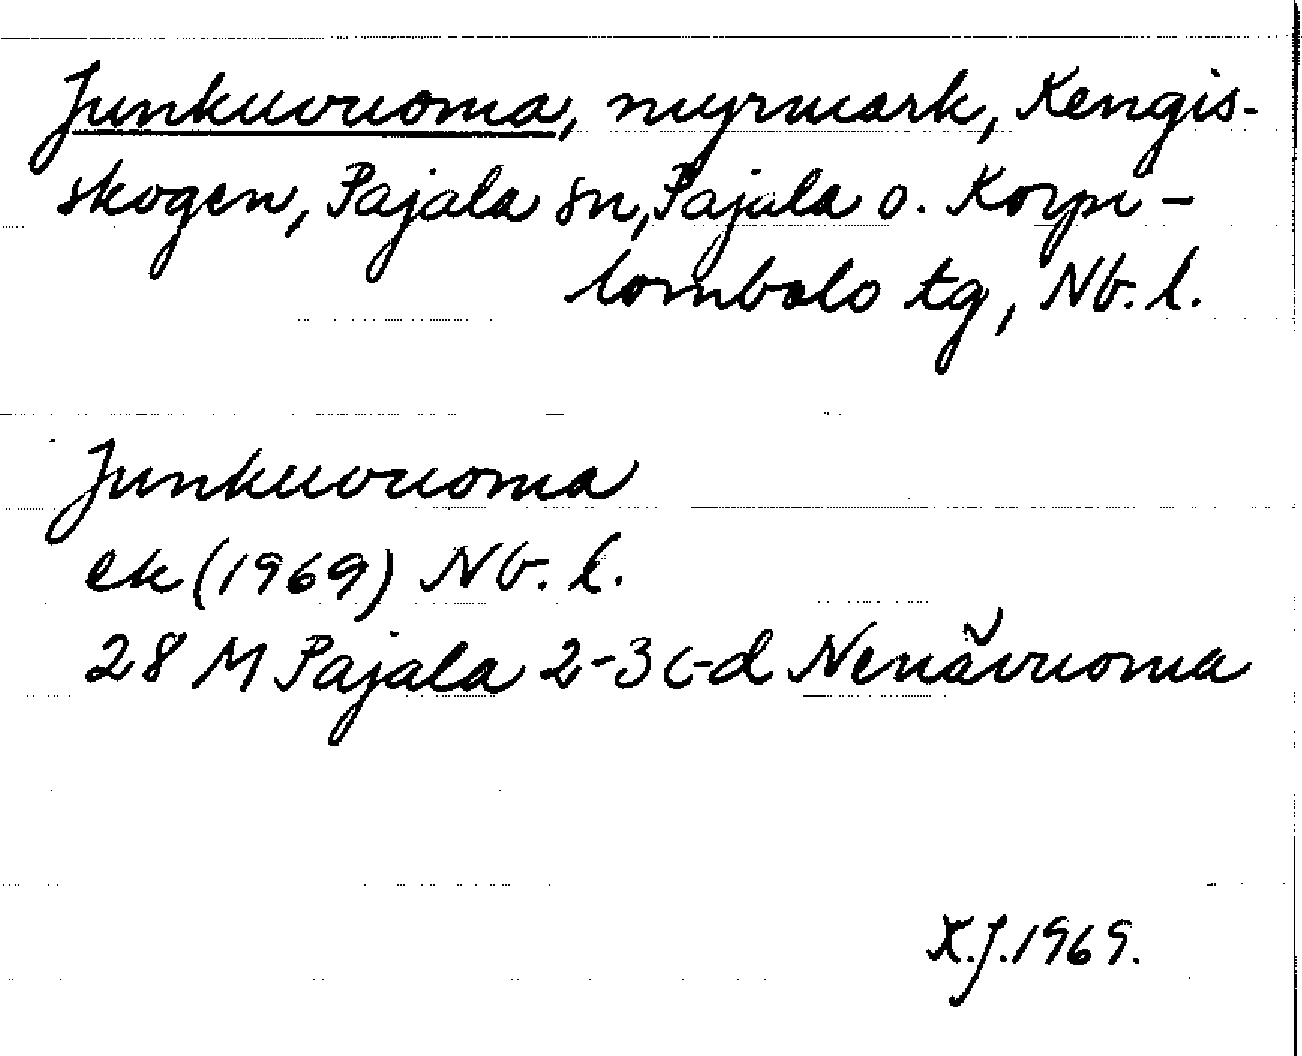 Junkuvuoma, myrmark, Kengis-
skogen, Pajala sn, Pajala o. Korpi-
lombolo tg, Nb. l.
Junkuvuoma
ek (1969) Nb. l.
28 M Pajala 2-3 c-d Nenävuoma
K.J. 1969.